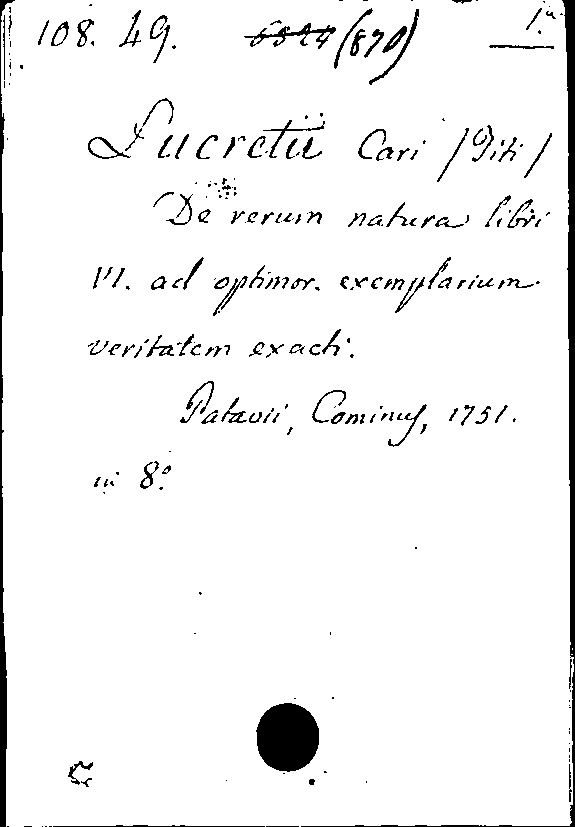 108. 49. 6324 (870) 1.a
Lucretii Cari /Titi/
De rerum natura libri
VI. ad optimor. exemplarium
veritatem exacti.
Patavii, Cominus, 1751.
in 8.o
C